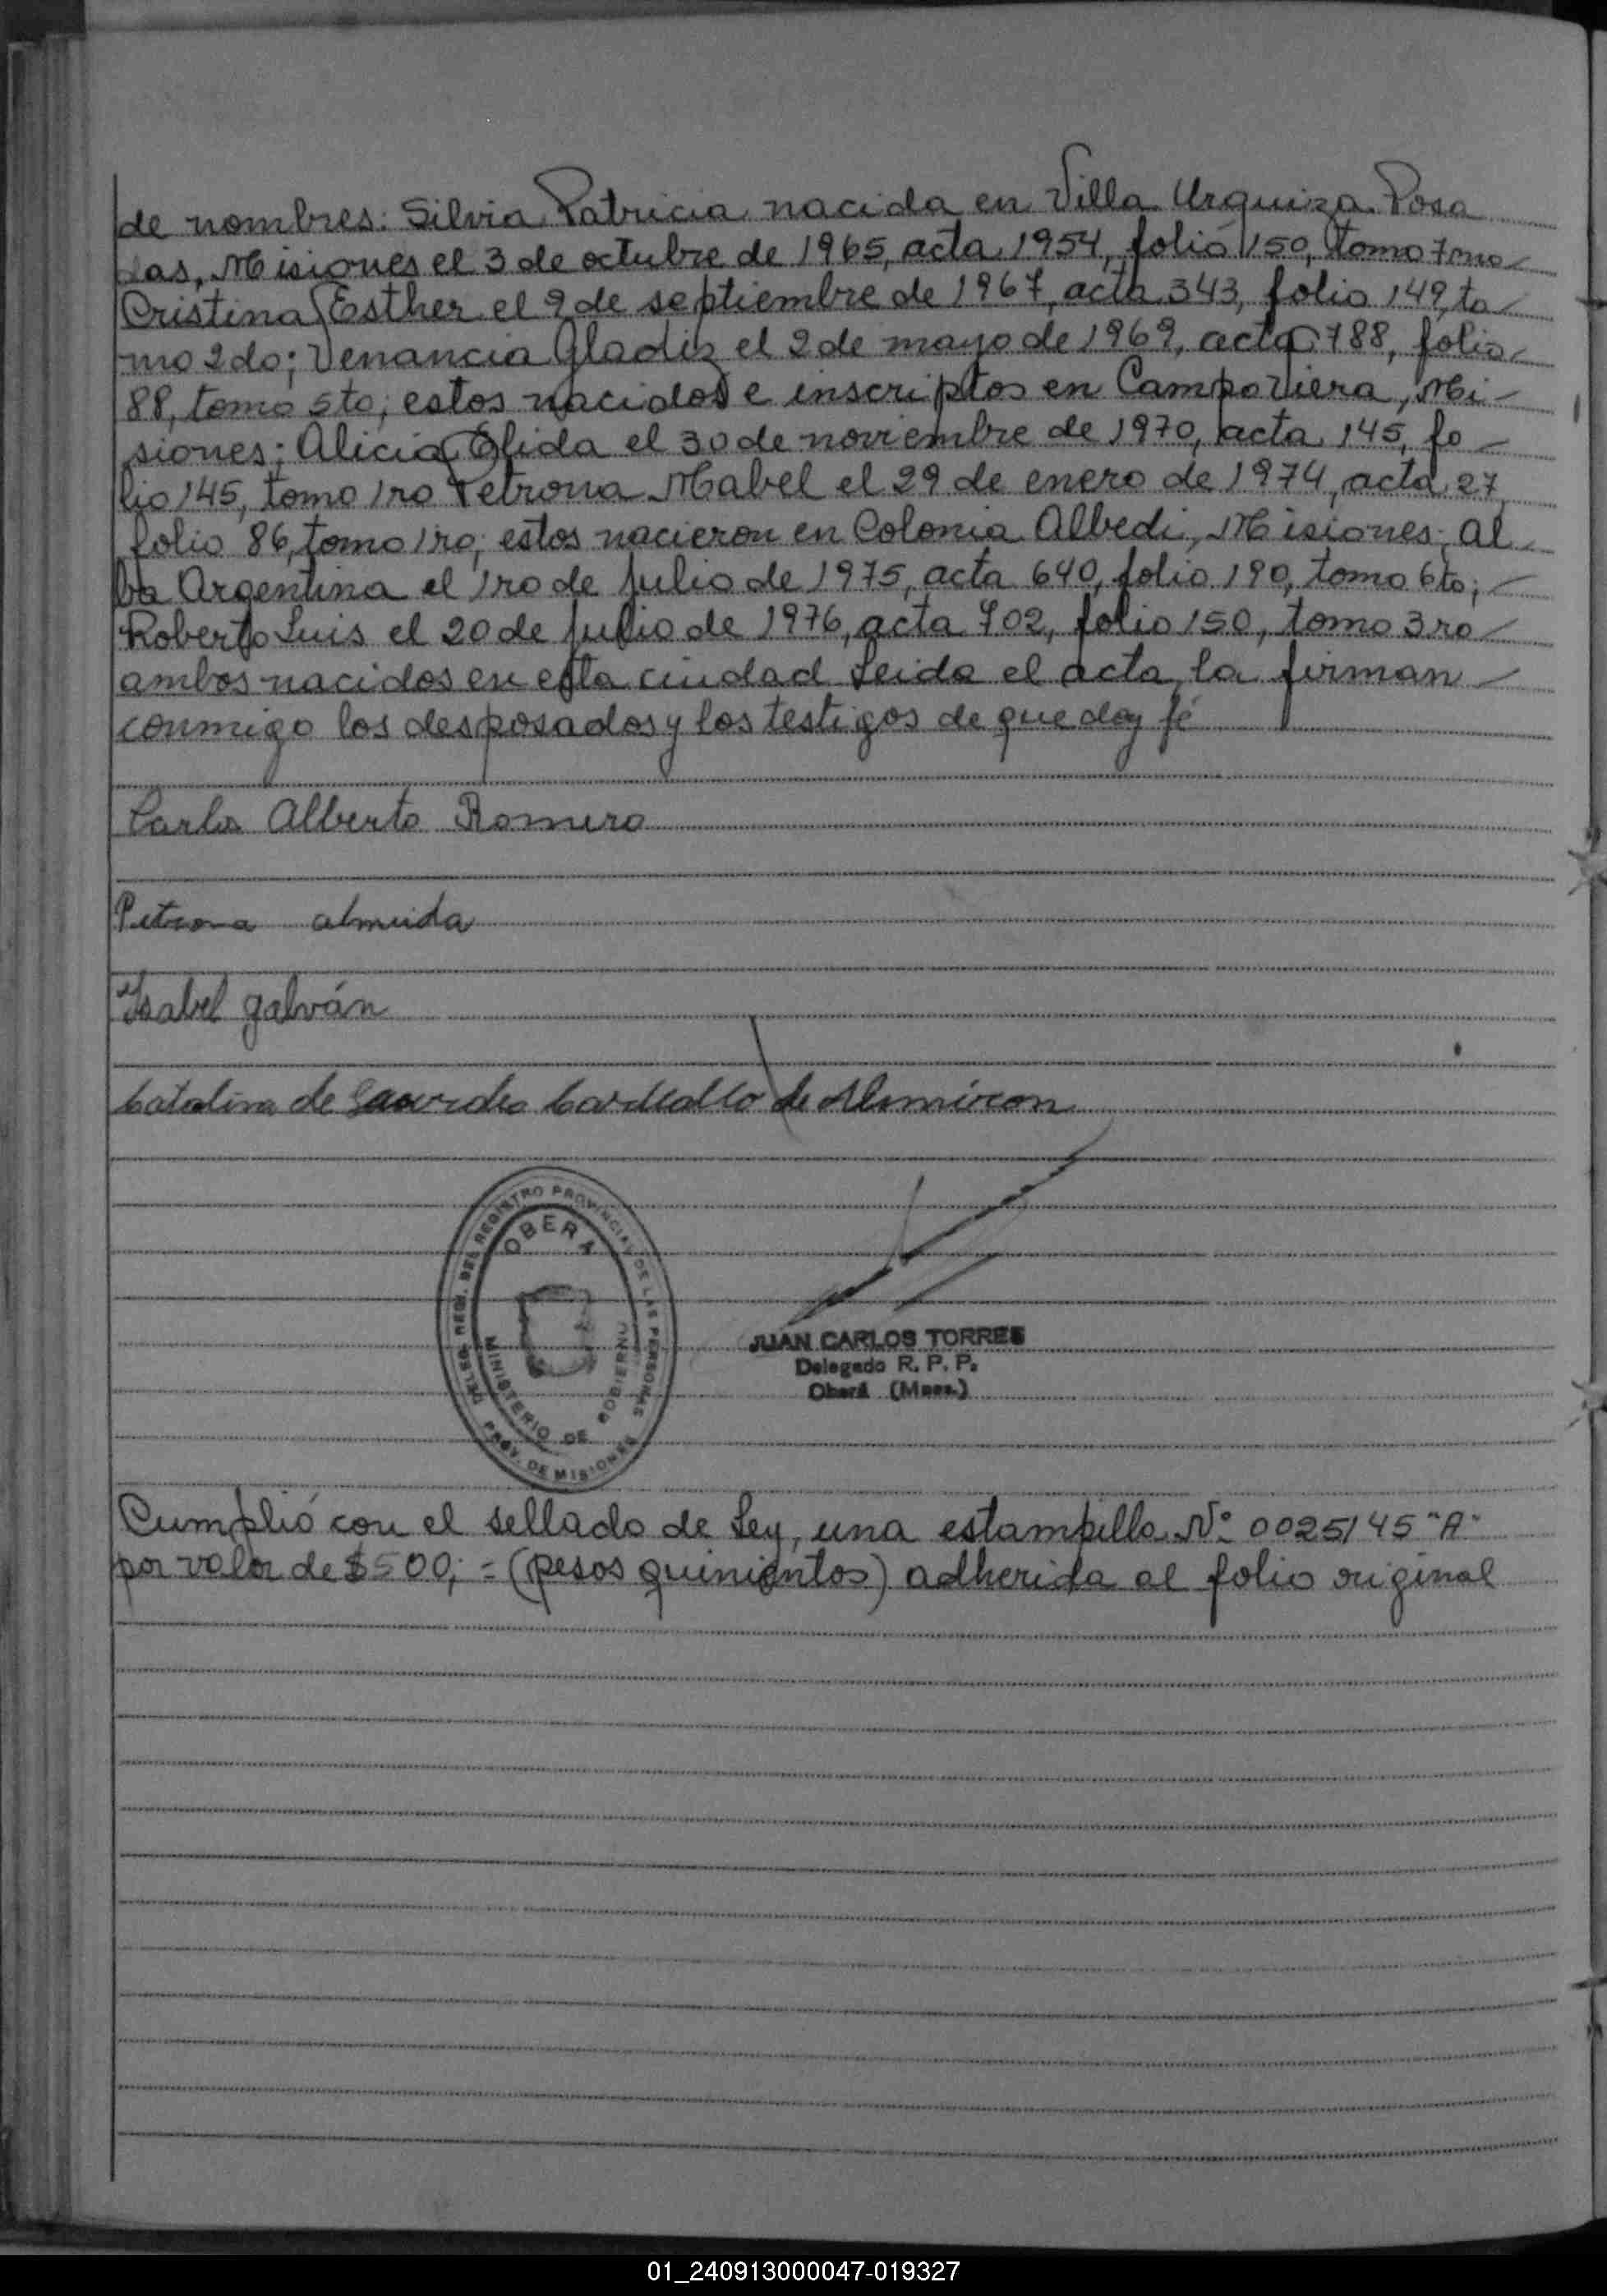 de nombres: Silvia Patricia nacida en Villa Urquiza Posa
das, Misiones el 3 de octubre de 1965, acta 1954, folio 150, tomo 7mo
Cristina Esther el 9 de septiembre de 1967, acta 343, folio 149, to
mo 2do; Venancia Gladiz el 2 de mayo de 1969, acta 788, folio
88, tomo 5to; estos nacidos e inscriptos en Campo Viera, Mi-
siones; Alicia Elida el 30 de noviembre de 1970, acta 145, fo
lio 145, tomo 1ro Petrona Mabel el 29 de enero de 1974, acta 27
folio 86, tomo 1ro; estos nacieron en Colonia Albedi, Misiones; Al
ba Argentina el 1ro de julio de 1975, acta 640, folio 190, tomo 6to;
Roberto Luis el 20 de julio de 1976, acta 702, folio 150, tomo 3ro
ambos nacidos en esta ciudad Leida el acta, la firman
conmigo los desposados y los testigos de que doy fé
Carlos Alberto Romero
Petrona almeida
Ysabel galván
Catalina de Lourdes de Almiron
DELEG. REGI. DEL REGISTRO PROVINCIAL DE LAS PERSONAS
OBERA
MINISTERIO DE GOBIERNO
PROV. DE MISIONES
JUAN CARLOS TORRES
Delegado R. P. P.
Oberá (Mnes.)
Cumplió con el sellado de Ley, una estampilla Nº 0025145 "A"
por valor de $500,= (pesos quinientos) adherida al folio original
01_240913000047-019327